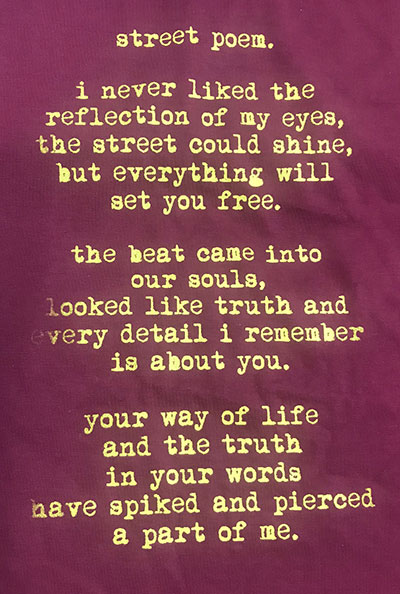 street poem.
i never liked the
reflection of my eyes,
the street could shine,
but everything will
set you free.
the beat came into
our souls,
looked like truth and
every detail i remember
is about you.
your way of life
and the truth
in your words
have spiked and pierced
a part of me.